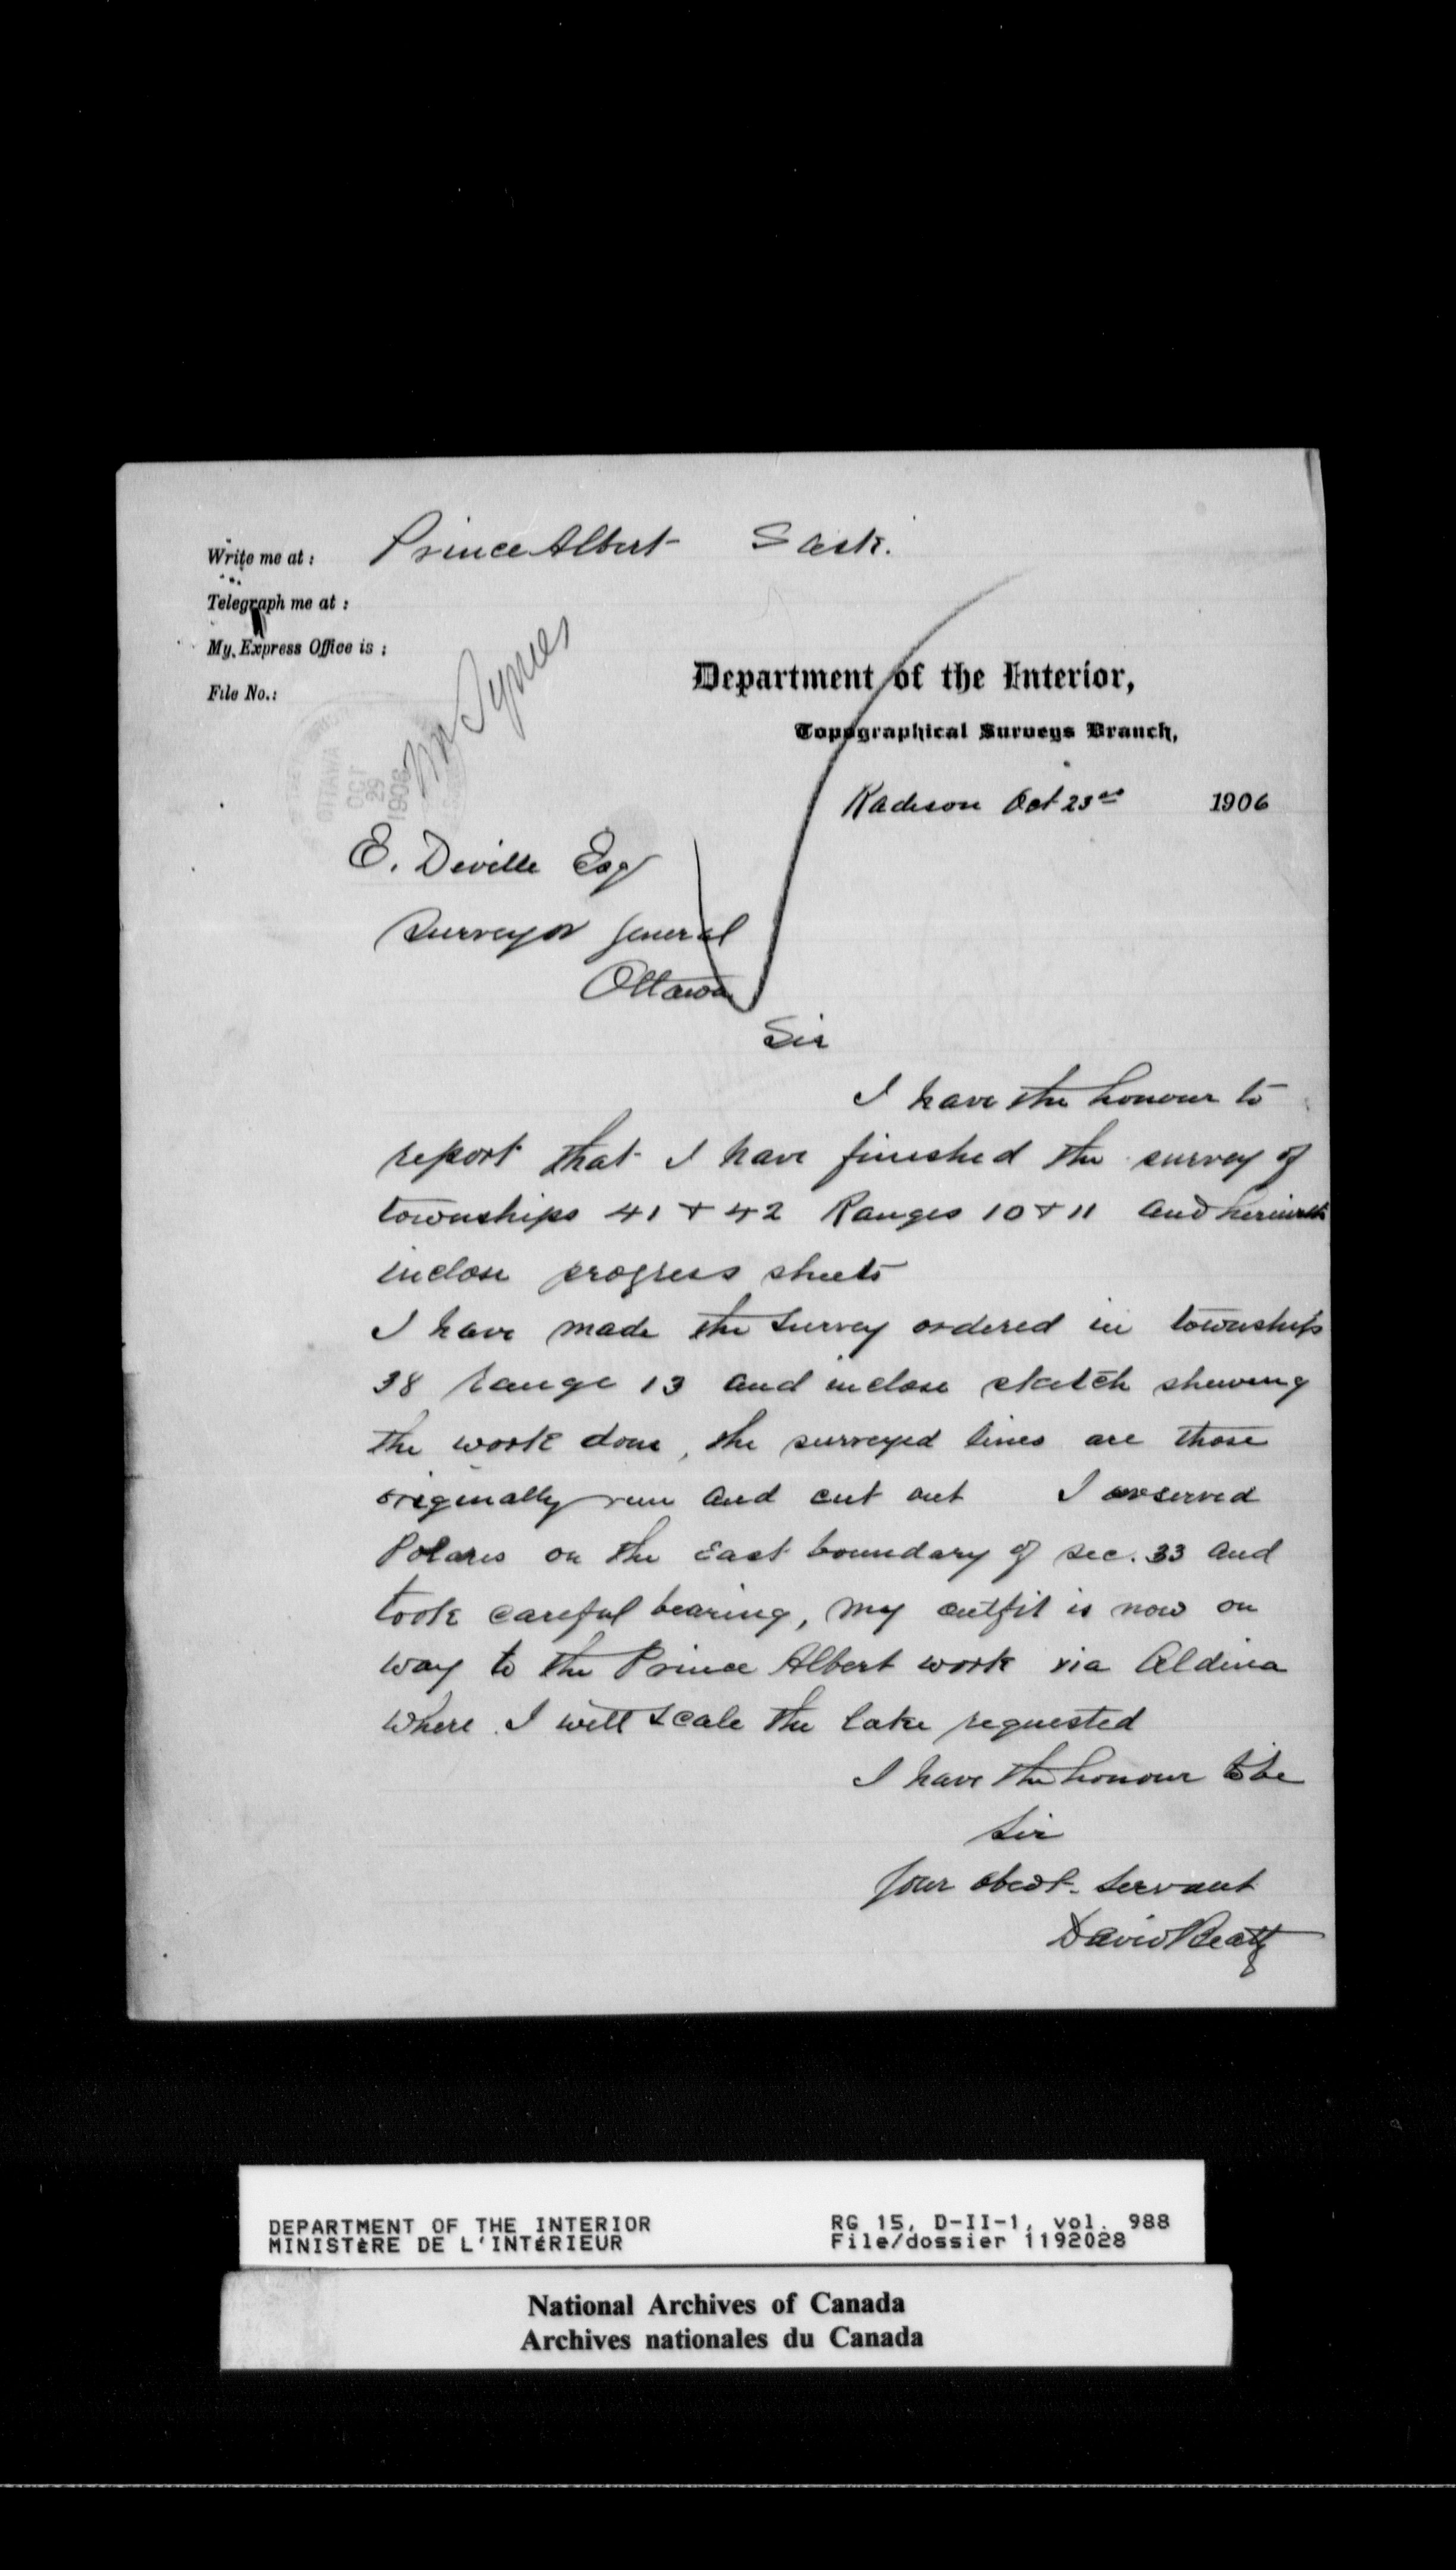 Write me at : Prince Albert Sask.
Telegraph me at :
My Express Office is :
File No.:
Mr Symes
Department of the Interior,
Topographical Surveys Branch,
OTTAWA
OCT
29
1906
Radison Oct 23rd 1906
E. Deville Esq
Surveyor General
Ottawa
Sir
I have the honour to
report that I have finished the survey of
townships 41 + 42 Ranges 10 + 11 and herewith
inclose progress sheets
I have made the survey ordered in townships
38 range 13 and inclose sketch shewing
the work done, the surveyed lines are those
originally run and cut out I observed
Polaris on the East boundary of sec. 33 and
took careful bearing, my outfit is now on
way to the Prince Albert work via Aldina
where I will scale the lake requested
I have the honour to be
Sir
Your obedt. servant
David Beatty
DEPARTMENT OF THE INTERIOR RG 15, D-II-1, vol. 988
MINISTÈRE DE L'INTÉRIEUR File/dossier 1192028
National Archives of Canada
Archives nationales du Canada